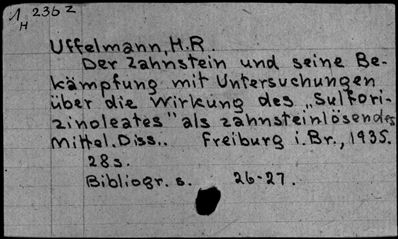 1 2362
H
Uffelmann, H.R.
Der Zahnstein und seine Be-
kämpfung mit Untersuchungen
über die Wirkung des „Sulfori-
zinoleates" als zahnsteinlösendes
Mittel. Diss.. Freiburg i. Br., 1935.
28 s.
Bibliogr. s. 26-27.